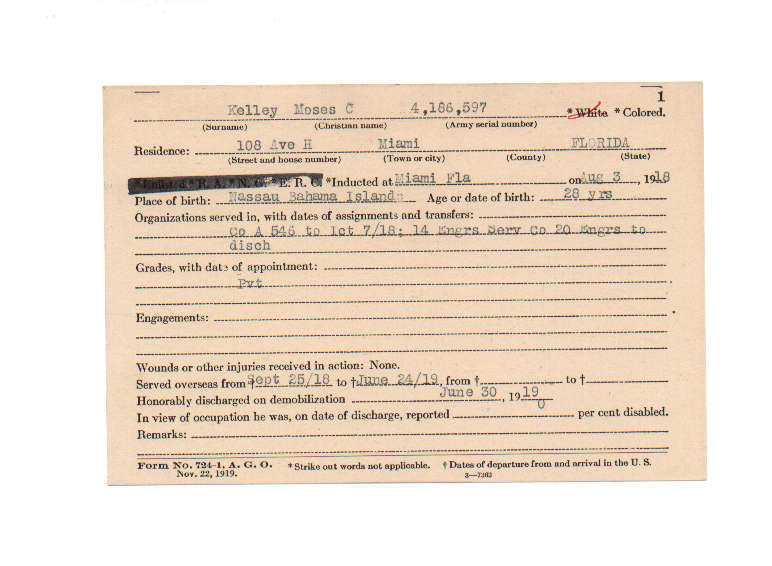 1
Kelley Moses C 4,186,597 * White * Colored.
(Surname) (Christian name) (Army serial number)
Residence: 108 Ave H Miami FLORIDA
(Street and house number) (Town or city) (County) (State)
* R. A. * N. G. * E. R. C. *Inducted at Miami Fla on Aug 3, 1918
Place of birth: Nassau Bahama Islands Age or date of birth: 28 yrs
Organizations served in, with dates of assignments and transfers:
Co A 546 to Ict 7/18; 14 Engrs Serv Co 20 Engrs to
disch
Grades, with date of appointment:
Pvt
Engagements:
Wounds or other injuries received in action: None.
Served overseas from † Sept 25/18 to † June 24/19, from † to †
Honorably discharged on demobilization June 30, 1919
In view of occupation he was, on date of discharge, reported 0 per cent disabled.
Remarks:
Form No. 724-1, A. G. O. * Strike out words not applicable. † Dates of departure from and arrival in the U. S.
Nov. 22, 1919. 3—7363